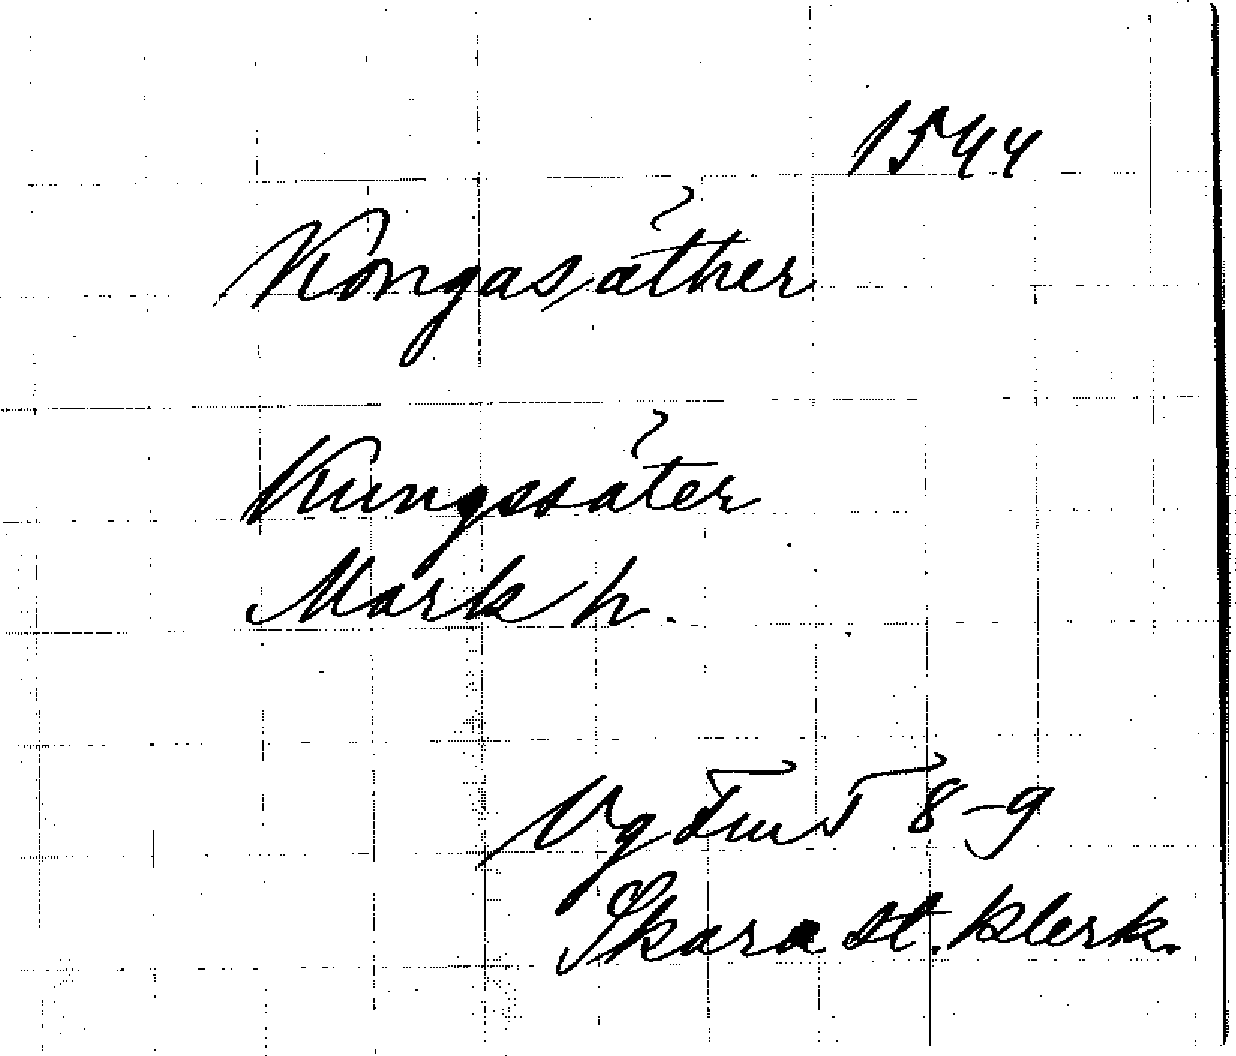 1544
Kongasäther
Kungssäter
Mark h.
Vg Fm T 8-9
Skara st. klerk.